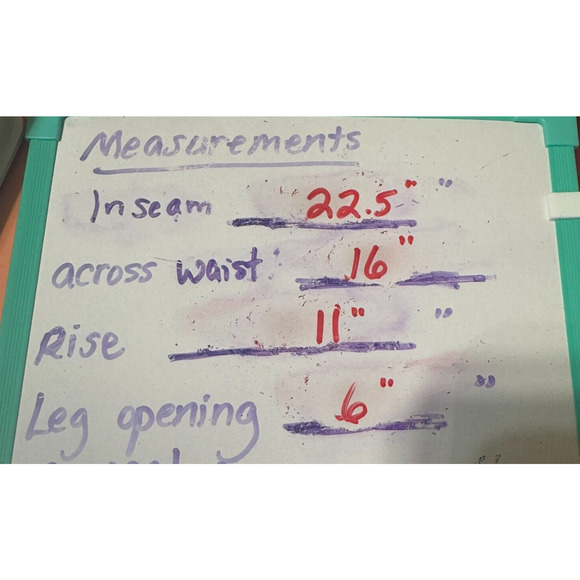 Measurements
Inseam 22.5" "
across waist: 16"
Rise 11" "
Leg opening 6" "